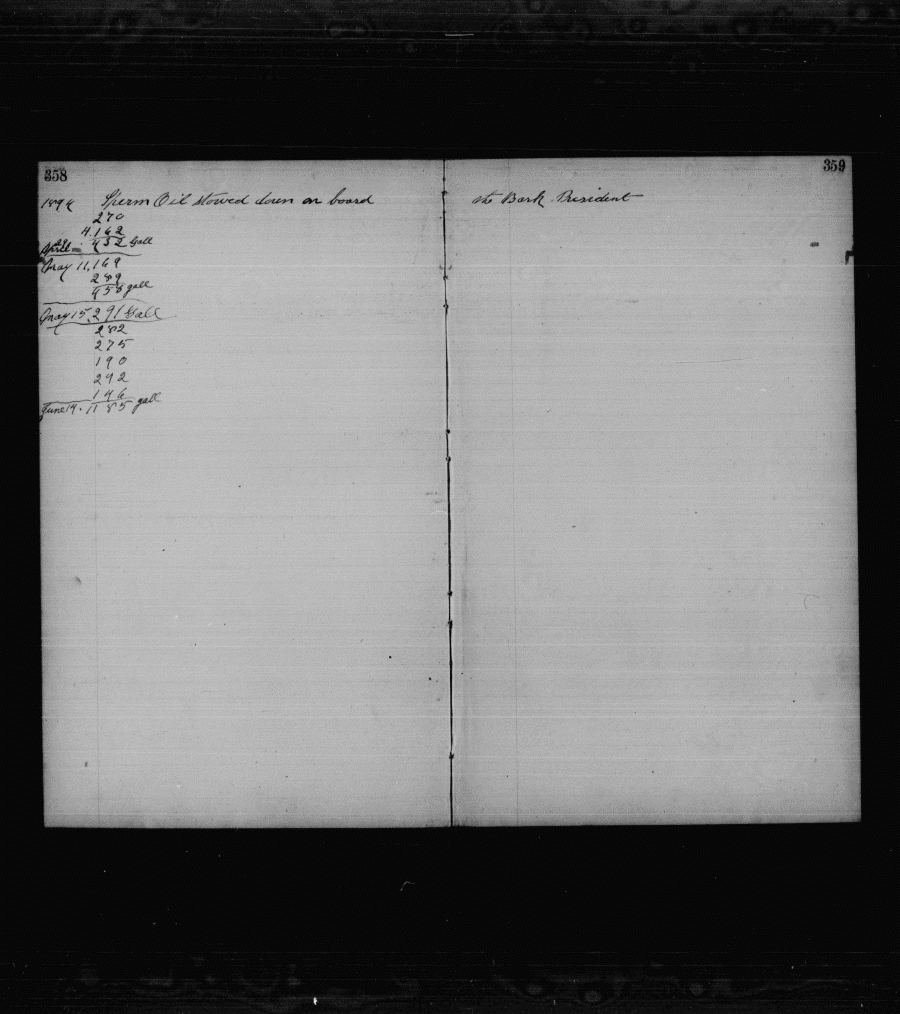 358
359
1894 Sperm Oil stowed down on board the Bark President
270
4.162
April 432 Gall
May 11, 169
289
458 gall
May 15, 291 Gall
282
275
190
292
146
June 14. 1185 gall